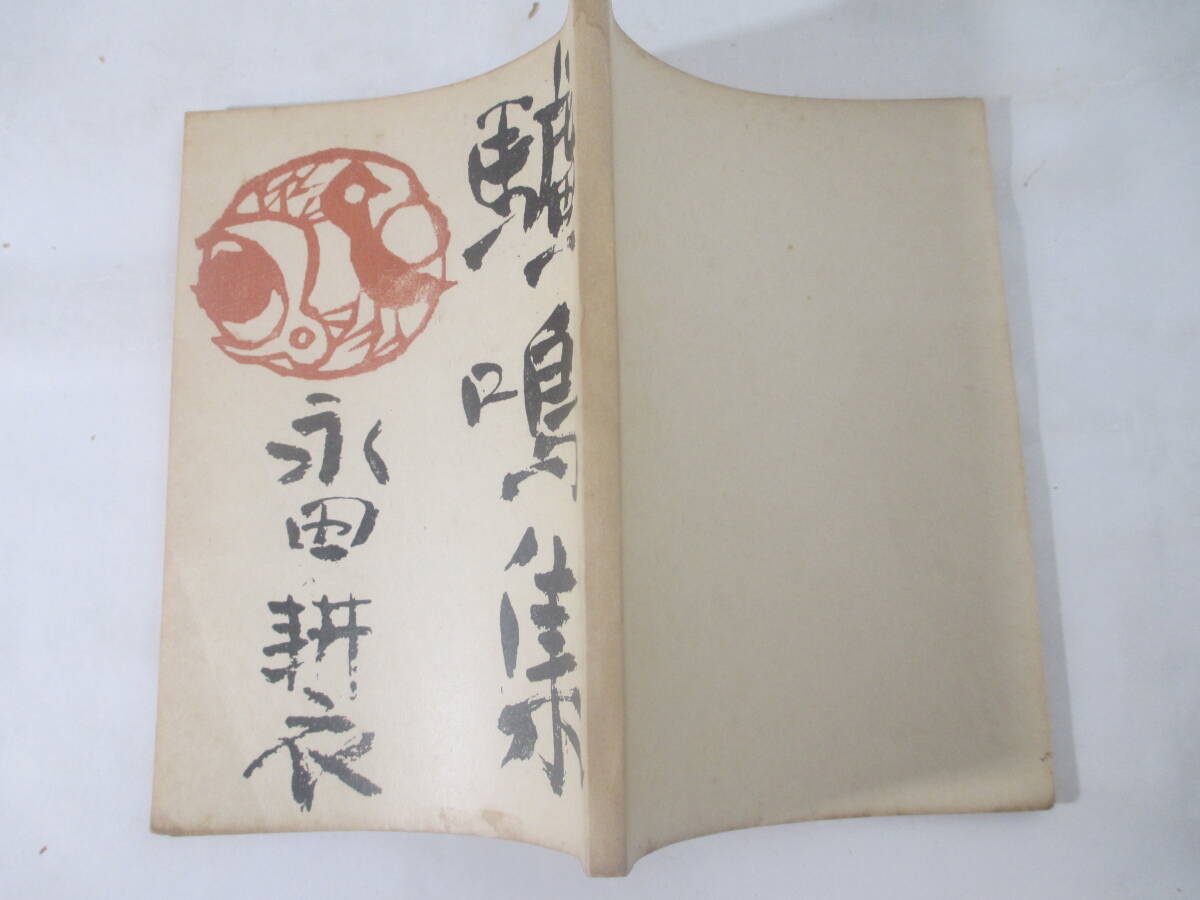 驢鳴集
永田耕衣